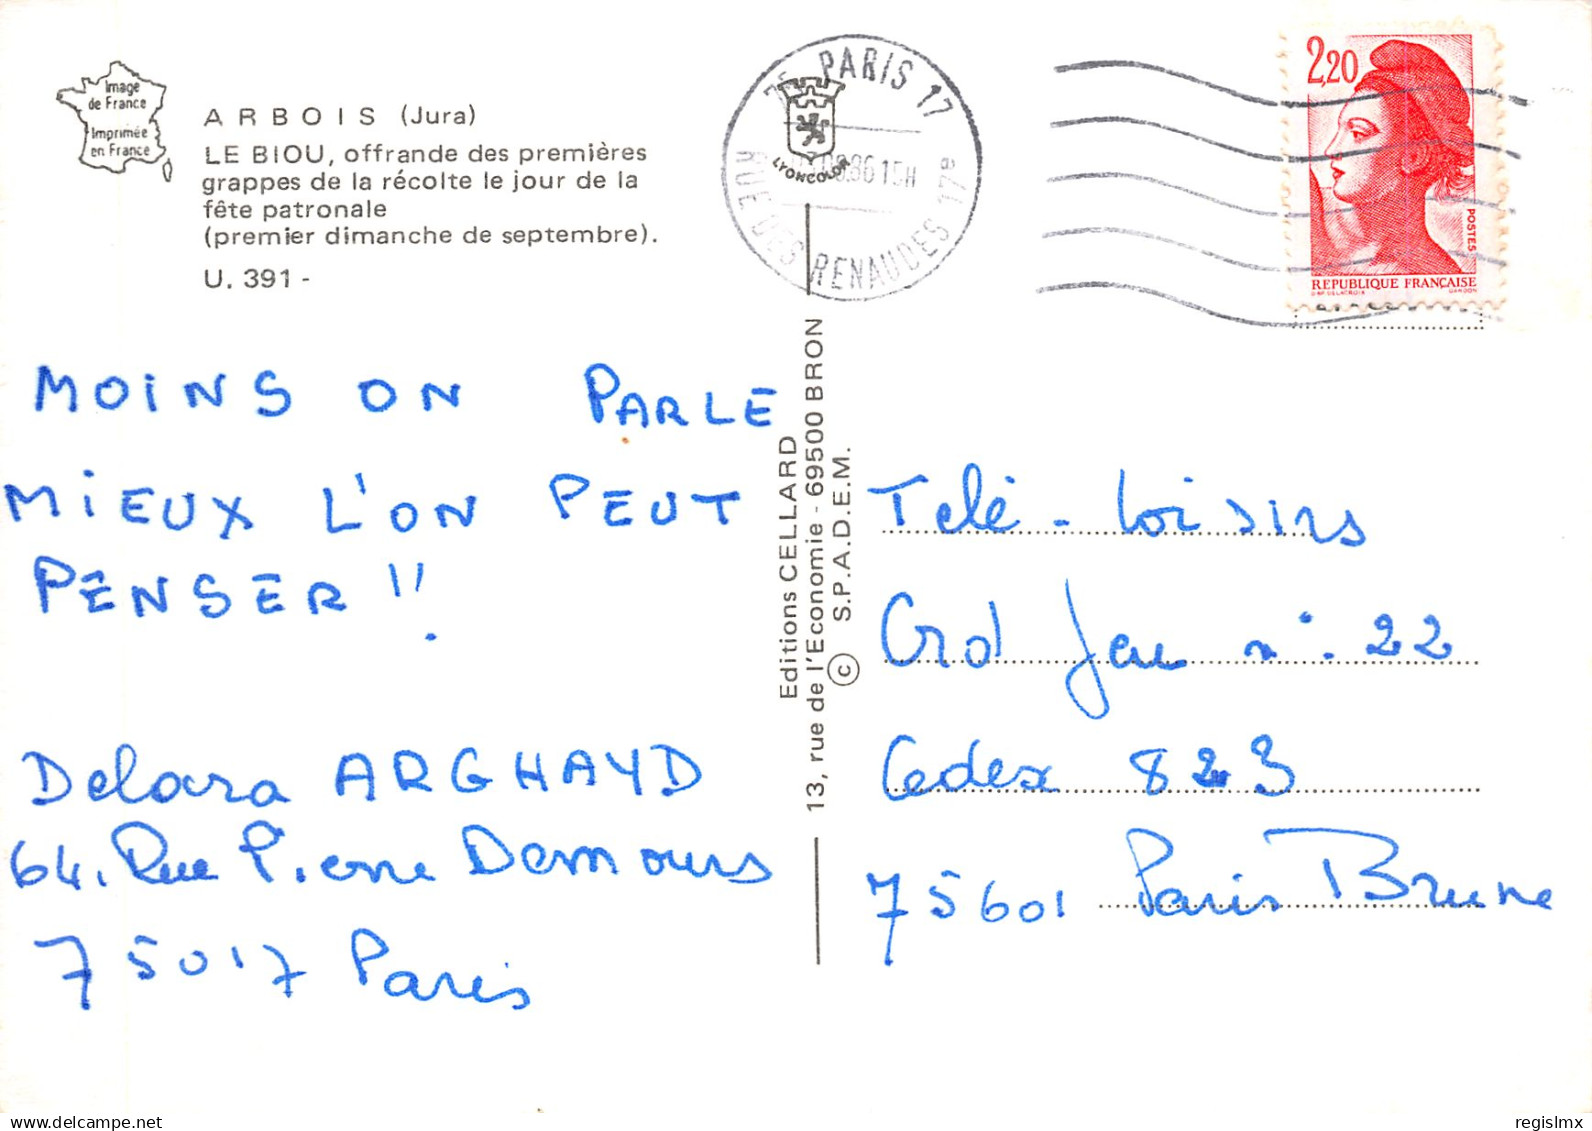 Image
de France
Imprimée
en France
ARBOIS (Jura)
LE BIOU, offrande des premières
grappes de la récolte le jour de la
fête patronale
(premier dimanche de septembre).
U. 391 -
75 PARIS 17
RUE DES RENAUDES 17e
86 15H
LYONCOLOR
2,20
POSTES
REPUBLIQUE FRANÇAISE
D'AP. DELACROIX GANDON
MOINS ON PARLE
MIEUX L'ON PEUT
PENSER !!
Delara ARGHAYD
64. Rue Pierre Demours
75017 Paris
Editions CELLARD
13, rue de l'Economie - 69500 BRON
© S.P.A.D.E.M.
Telé - Loisirs
Grd Jeu n°. 22
Cedex 823
75601 Paris Brune
regislmx